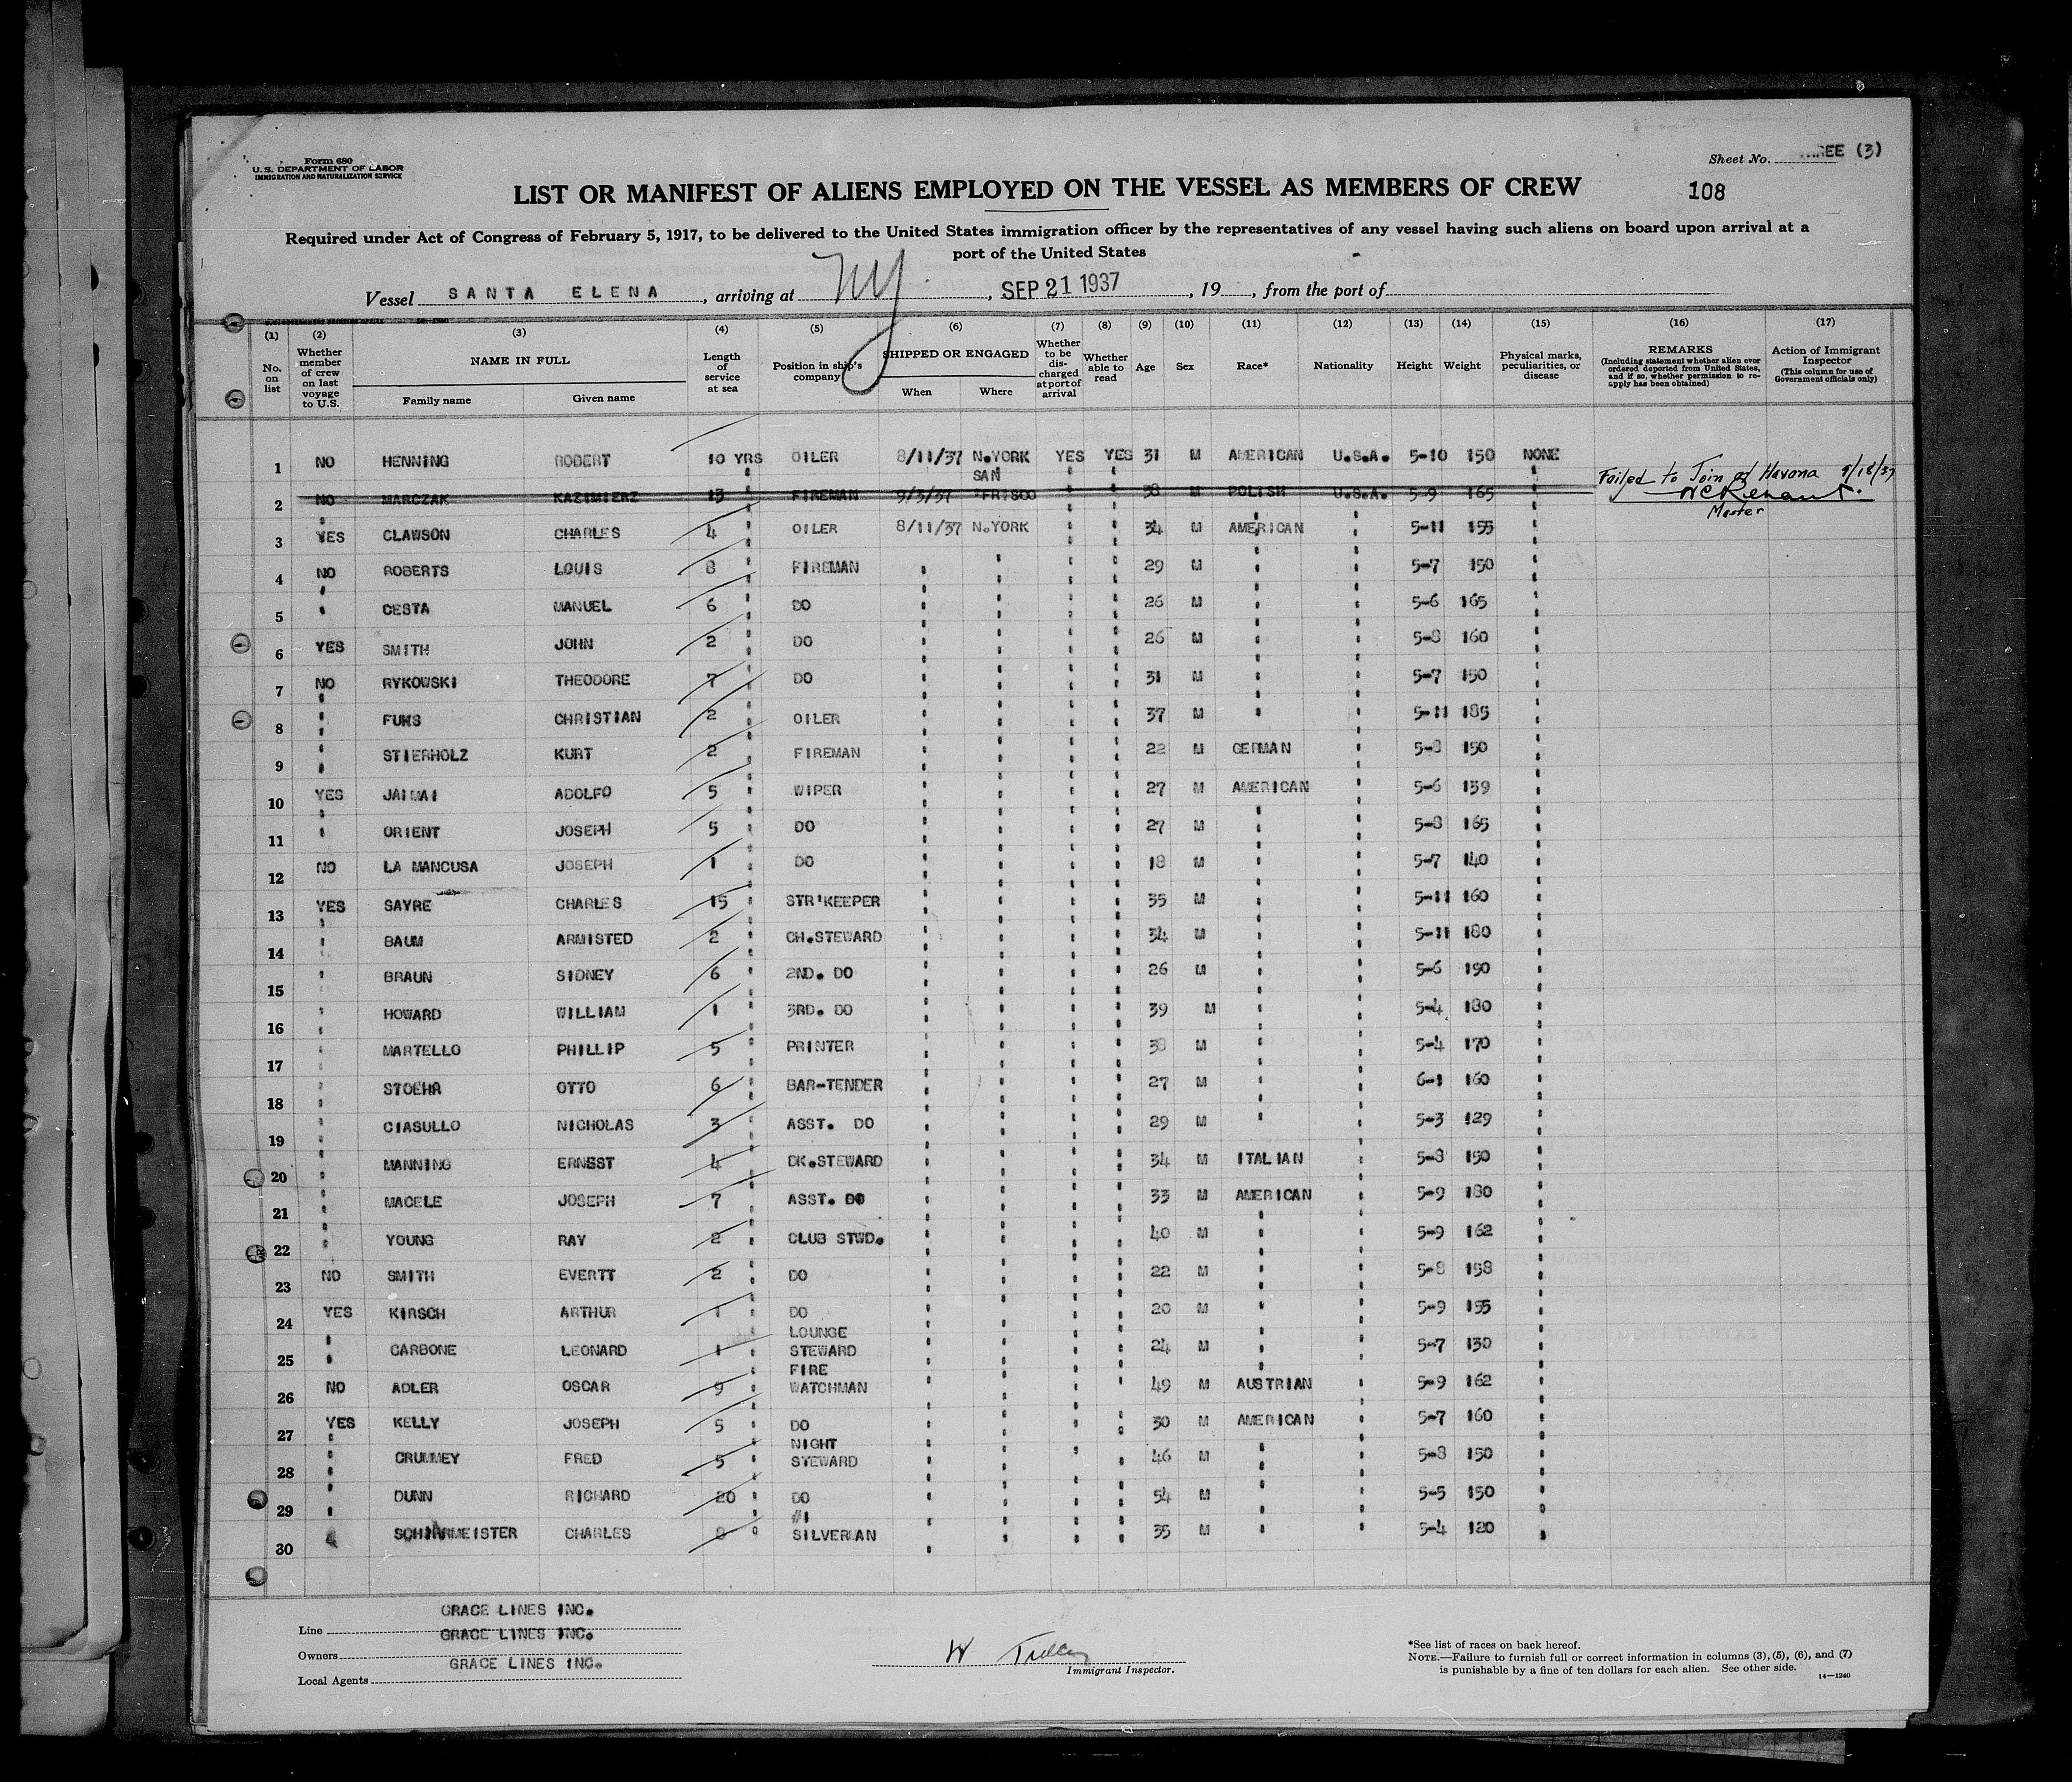 Form 680
U.S. DEPARTMENT OF LABOR
IMMIGRATION AND NATURALIZATION SERVICE
Sheet No. THREE (3)
LIST OR MANIFEST OF ALIENS EMPLOYED ON THE VESSEL AS MEMBERS OF CREW
108
Required under Act of Congress of February 5, 1917, to be delivered to the United States immigration officer by the representatives of any vessel having such aliens on board upon arrival at a
port of the United States
Vessel SANTA ELENA, arriving at NY, SEP 21 1937, 19, from the port of
(1) (2) (3) (4) (5) (6) (7) (8) (9) (10) (11) (12) (13) (14) (15) (16) (17)
No. on list
Whether member of crew on last voyage to U.S.
NAME IN FULL
Family name
Given name
Length of service at sea
Position in ship's company
SHIPPED OR ENGAGED
When
Where
Whether to be discharged at port of arrival
Whether able to read
Age
Sex
Race*
Nationality
Height
Weight
Physical marks, peculiarities, or disease
REMARKS
(Including statement whether alien ever ordered deported from United States, and if so, whether permission to reapply has been obtained)
Action of Immigrant Inspector
(This column for use of Government officials only)
1 NO HENNING ROBERT 10 YRS OILER 8/11/37 N.YORK YES YES 31 M AMERICAN U.S.A. 5-10 150 NONE
2 NO MARCZAK KAZIMIERZ 13 " FIREMAN 9/3/37 SAN 'FRISCO " " 38 M POLISH U.S.A. 5-9 165 " Failed to Join at Havana 9/18/37
Master
3 YES CLAWSON CHARLES 4 " OILER 8/11/37 N.YORK " " 34 M AMERICAN " 5-11 155 "
4 NO ROBERTS LOUIS 8 " FIREMAN " " " " 29 M " " 5-7 150 "
5 " CESTA MANUEL 6 " DO " " " " 26 M " " 5-6 165 "
6 YES SMITH JOHN 2 " DO " " " " 26 M " " 5-8 160 "
7 NO RYKOWSKI THEODORE 7 " DO " " " " 31 M " " 5-7 150 "
8 " FUHS CHRISTIAN 2 " OILER " " " " 37 M " " 5-11 185 "
9 " STIERHOLZ KURT 2 " FIREMAN " " " " 22 M GERMAN " 5-8 150 "
10 YES JAIMAI ADOLFO 5 " WIPER " " " " 27 M AMERICAN " 5-6 139 "
11 " ORIENT JOSEPH 5 " DO " " " " 27 M " " 5-8 165 "
12 NO LA MANCUSA JOSEPH 1 " DO " " " " 18 M " " 5-7 140 "
13 YES SAYRE CHARLES 15 " STR'KEEPER " " " " 35 M " " 5-11 160 "
14 " BAUM ARMISTED 2 " CH.STEWARD " " " " 34 M " " 5-11 180 "
15 " BRAUN SIDNEY 6 " 2ND. DO " " " " 26 M " " 5-6 190 "
16 " HOWARD WILLIAM 1 " 3RD. DO " " " " 39 M " " 5-4 180 "
17 " MARTELLO PHILLIP 5 " PRINTER " " " " 38 M " " 5-4 170 "
18 " STOEHR OTTO 6 " BAR-TENDER " " " " 27 M " " 6-1 160 "
19 " CIASULLO NICHOLAS 3 " ASST. DO " " " " 29 M " " 5-3 129 "
20 " MANNING ERNEST 4 " DK.STEWARD " " " " 34 M ITALIAN " 5-8 190 "
21 " MACELE JOSEPH 7 " ASST. DO " " " " 33 M AMERICAN " 5-9 180 "
22 " YOUNG RAY 2 " CLUB STWD. " " " " 40 M " " 5-9 162 "
23 NO SMITH EVERTT 2 " DO " " " " 22 M " " 5-8 158 "
24 YES KIRSCH ARTHUR 1 " DO " " " " 20 M " " 5-9 155 "
25 " CARBONE LEONARD 1 " LOUNGE STEWARD " " " " 24 M " " 5-7 130 "
26 NO ADLER OSCAR 9 " FIRE WATCHMAN " " " " 49 M AUSTRIAN " 5-9 162 "
27 YES KELLY JOSEPH 5 " DO " " " " 30 M AMERICAN " 5-7 160 "
28 " CRUMMEY FRED 5 " NIGHT STEWARD " " " " 46 M " " 5-8 150 "
29 " DUNN RICHARD 20 " DO " " " " 54 M " " 5-5 150 "
30 SCHIRRMEISTER CHARLES 8 " #1 SILVERMAN " " " " 35 M " " 5-4 120 "
Line GRACE LINES INC.
Owners GRACE LINES INC.
Local Agents GRACE LINES INC.
W
Immigrant Inspector.
*See list of races on back hereof.
NOTE.—Failure to furnish full or correct information in columns (3), (5), (6), and (7)
is punishable by a fine of ten dollars for each alien. See other side.
14—1240